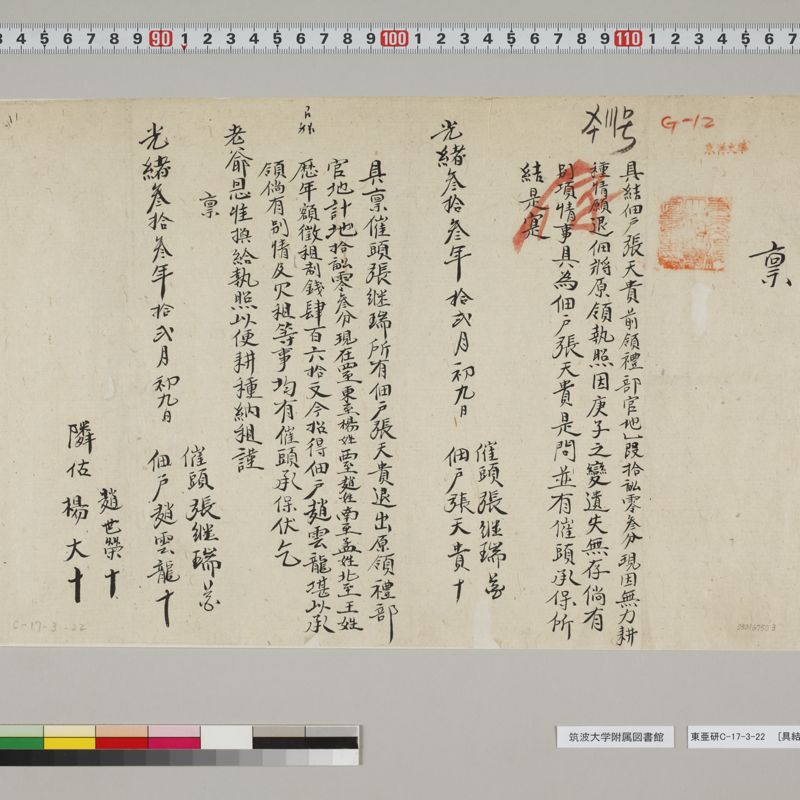 稟
G-12
具結佃戶張天貴前領禮部官地一段拾畝零叁分現因無力耕
種情願退佃將原領執照因庚子之變遺失無存倘有
別項情事具為佃戶張天貴是問並有催頭承保所
結是實
催頭張继瑞
光緒叁拾叁年拾弍月初九日 佃戶張天貴十
具稟催頭張继瑞所有佃戶張天貴退出原領禮部
官地計地拾畝零叁分現在四至東至楊姓西至趙姓南至孟姓北至王姓
歷年額徵租制錢肆百六拾文今招得佃戶趙雲龍堪以承
領倘有別情及欠租等事均有催頭承保伏乞
老爺恩准換給執照以便耕種納租謹
稟
催頭張继瑞
光緒叁拾叁年拾弍月初九日 佃戶趙雲龍十
趙世榮十
隣佑楊大十
C-17-3-22
3 4 5 6 7 8 9 90 1 2 3 4 5 6 7 8 9 100 1 2 3 4 5 6 7 8 9 110 1 2 3 4 5 6 7
筑波大学附属図書館
東亜研C-17-3-22 [具結